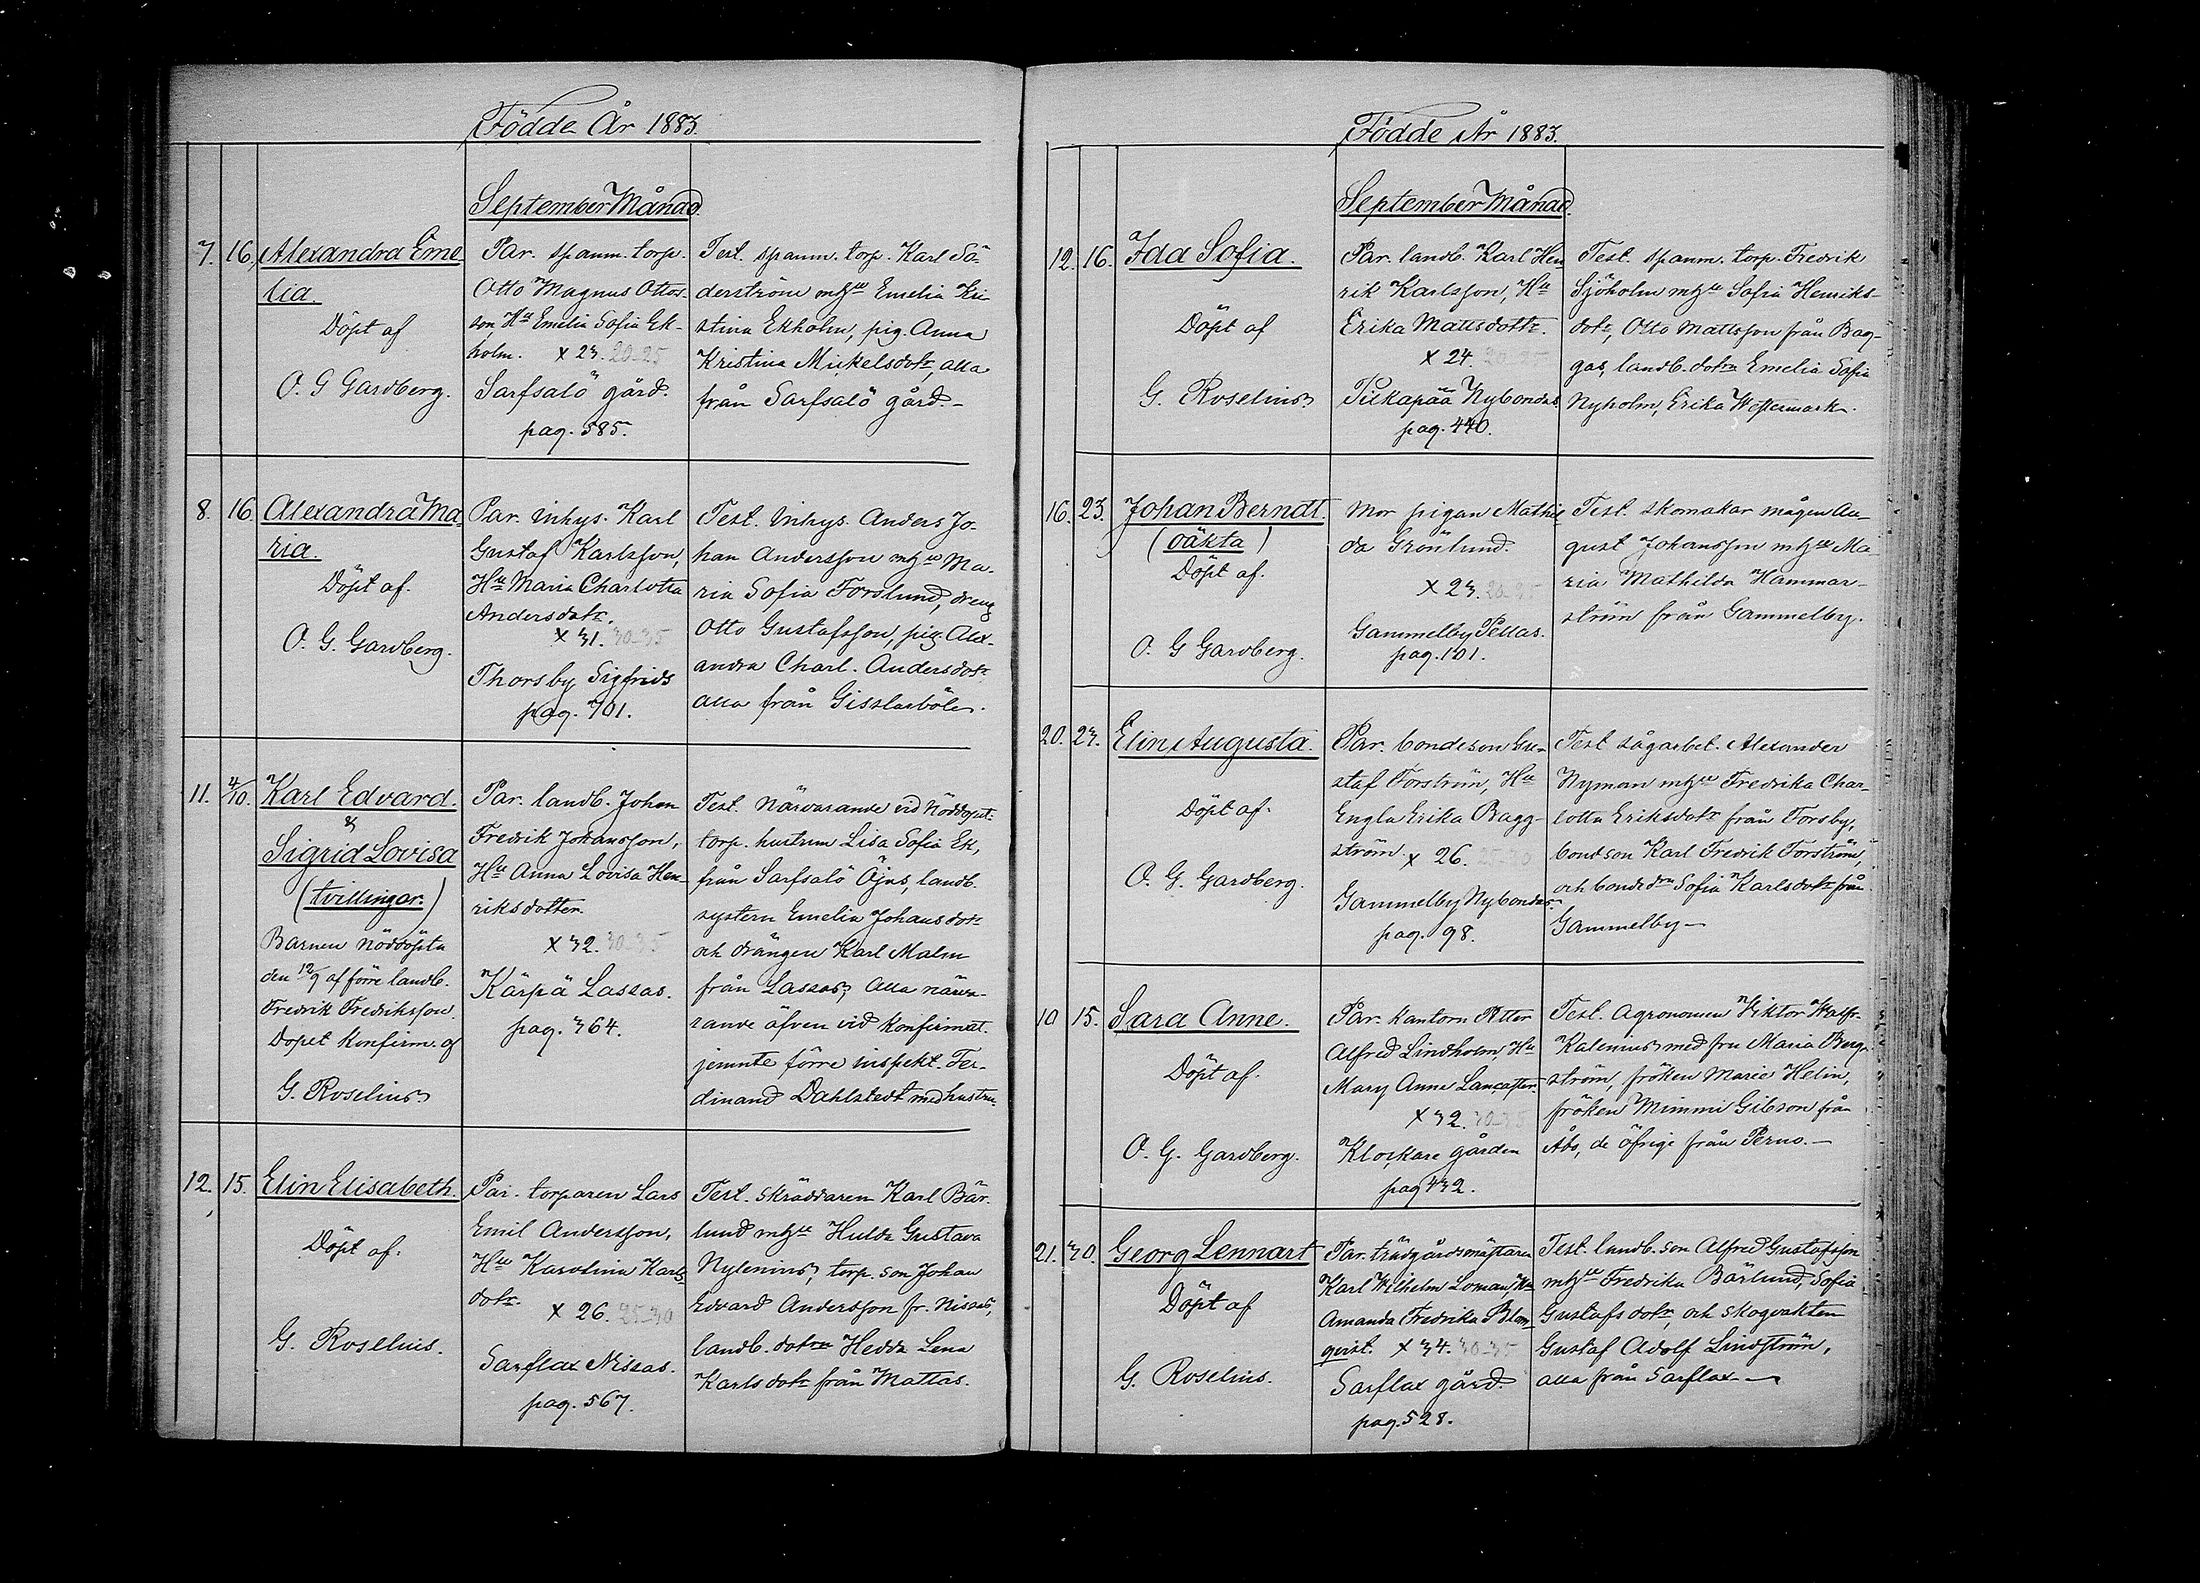 Födde År 1883.
September Månad.
7. 16. Alexandra Eme
lia.
Döpt af
O. G Gardberg.
Par. spanm. torp.
Otto Magnus Ottos
son Hu Emelia Sofia Ek-
holm. x 23. 20-25
Sarfsalö gård.
pag. 585.
Test. spanm. torp. Karl Sö-
derström mhu Emelia Kri
stina Ekholm, pig. Anna
Kristina Mickelsdotr, alla
från Sarfsalö gård.-
8. 16. Alexandra Ma-
ria.
Döpt af.
O. G. Gardberg.
Par. inhys. Karl
Gustaf Karlsson,
Hu Maria Charlotta
Andersdotr.
x 31. 30-35
Thorsby Sigfrids
pag. 701.
Test. Inhys. Anders Jo-
han Andersson mhu Ma-
ria Sofia Forslund, dreng
Otto Gustafsson, pig. Alex-
andra Charl. Andersdotr
alla från Gisslarböle.
11. 4/10. Karl Edvard.
&
Sigrid Lovisa
(tvillingar.)
Barnen nöddöpta
den 12/9 af förre landb.
Fredrik Fredriksson.
Dopet konfirm. af
G. Roselius
Par. landb. Johan
Fredrik Johansson,
Hu Anna Lovisa Hen-
riksdotter.
x 32. 30-35
Kärpä Lassas.
pag. 364.
Test. Närvarande vid Nöddopet:
torp. hustrun Lisa Sofia Ek,
från Sarfsalö Öjus, landb.
systern Emelia Johansdotr
och drängen Karl Malm
från Lassas; Alla närva-
rande äfven vid konfirmat.
jemnte förre inspekt. Fer-
dinand Dahlstedt med hustru.
12. 15. Elin Elisabeth.
Döpt af.
G. Roselius.
Par. torparen Lars
Emil Andersson,
Hu Karolina Karls
dotr.
x 26. 25-30
Sarflax Nissas.
pag. 567.
Test. skräddaren Karl Bär-
lund mhu Hulda Gustava
Nylenius, torp. son Johan
Edvard Andersson fr. Nissas,
landb. dotrn Hedda Lena
Karlsdotr från Mattas.
Födde År 1883.
September Månad.
12. 16. Ida Sofia.
Döpt af
G. Roselius
Par. landb. Karl Hen
rik Karlsson, Hu
Erika Mattsdotr.
x 24. 20-25
Pitkäpää Nybondas.
pag. 440.
Test. spanm. torp. Fredrik
Sjöholm mhu Sofia Henriks-
dotr, Otto Mattsson från Bag-
gas, landb. dotrn Emelia Sofia
Nyholm, Erika Westermark.
16. 23. Johan Berndt.
(oäkta)
Döpt af.
O. G Gardberg.
Mor pigan Mathil
da Grönlund.
x 23. 20-25
Gammelby Pellas.
pag. 101.
Test. skomakar mågen Au-
gust Johansson mhu Ma-
ria Mathilda Hammar-
ström från Gammelby.
20. 23. Elin Augusta.
Döpt af.
O. G. Gardberg.
Par. bondeson Gu-
staf Forström, Hu
Engla Erika Bagg-
ström. x 26. 25-30
Gammelby Nybondas.
pag. 98.
Test. sågarbet. Alexander
Nyman mhu Fredrika Char-
lotta Eriksdotr från Forsby,
bondson Karl Fredrik Forström,
och bonded:n Sofia Karlsdotr från
Gammelby-
10 15. Sara Anne.
Döpt af.
O. G. Gardberg.
Par. Kantorn Petter
Alfred Lindholm, Hu
Mary Anne Lancaster.
x 32. 30-35
Klockare gården
pag 432.
Test. Agronomen Viktor Walfr.
Kalenius med fru Maria Berg-
ström, fröken Marie Helin,
fröken Mimmi Gibson från
Åbo, de öfrige från Perno.-
21. 30. Georg Lennart
Döpt af
G. Roselius.
Par. trädgårdsmästaren
Karl Wilhelm Loman, Hu
Amanda Fredrika Blom-
qvist. x 34. 30-35
Sarflax gård.
pag. 528.
Test. landb. son Alfred Gustafsson
mhu Fredrika Bärlund, Sofia
Gustafsdotr, och skogvakten
Gustaf Adolf Lindström,
alla från Sarflax.-